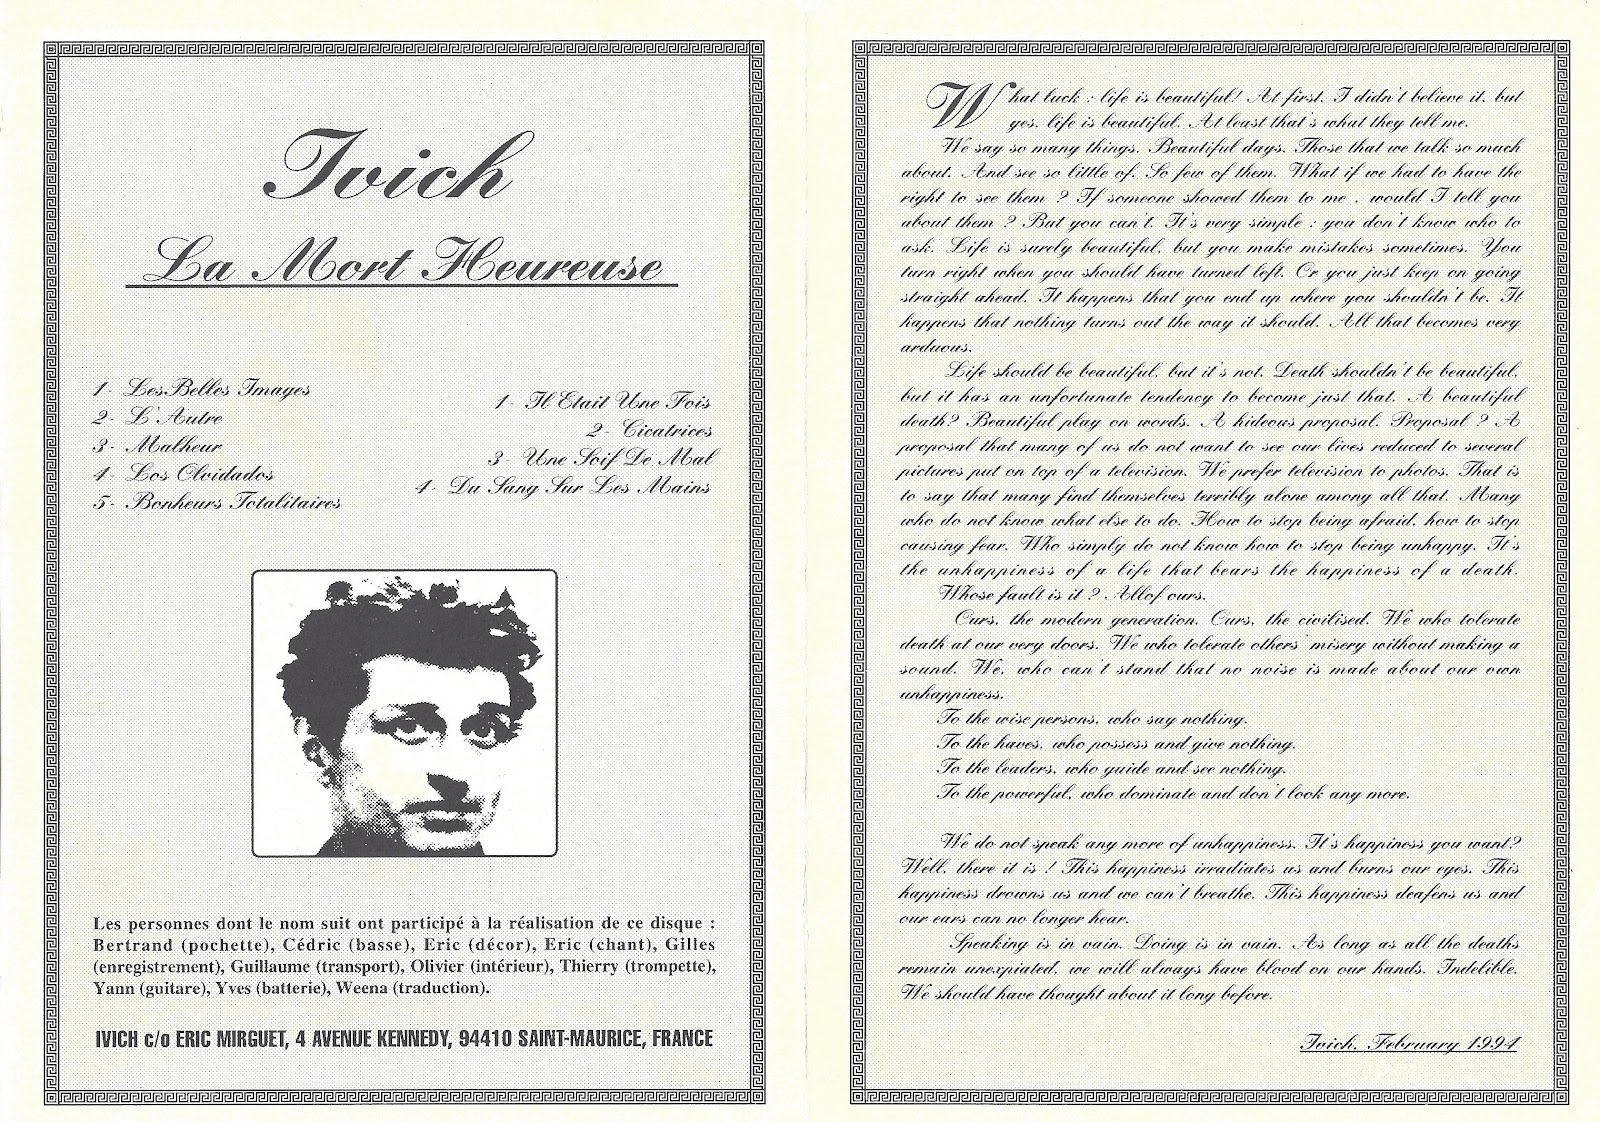 Ivich
La Mort Heureuse
1- Les Belles Images
2- L'Autre
3- Malheur
4- Los Olvidados
5- Bonheurs Totalitaires
1- Il Etait Une Fois
2- Cicatrices
3- Une Soif De Mal
4- Du Sang Sur Les Mains
Les personnes dont le nom suit ont participé à la réalisation de ce disque :
Bertrand (pochette), Cédric (basse), Eric (décor), Eric (chant), Gilles
(enregistrement), Guillaume (transport), Olivier (intérieur), Thierry (trompette),
Yann (guitare), Yves (batterie), Weena (traduction).
IVICH c/o ERIC MIRGUET, 4 AVENUE KENNEDY, 94410 SAINT-MAURICE, FRANCE
What luck : life is beautiful! At first, I didn't believe it, but
yes, life is beautiful. At least that's what they tell me.
We say so many things. Beautiful days. Those that we talk so much
about. And see so little of. So few of them. What if we had to have the
right to see them ? If someone showed them to me , would I tell you
about them ? But you can't. It's very simple : you don't know who to
ask. Life is surely beautiful, but you make mistakes sometimes. You
turn right when you should have turned left. Or you just keep on going
straight ahead. It happens that you end up where you shouldn't be. It
happens that nothing turns out the way it should. All that becomes very
arduous.
Life should be beautiful, but it's not. Death shouldn't be beautiful,
but it has an unfortunate tendency to become just that. A beautiful
death? Beautiful play on words. A hideous proposal. Proposal ? A
proposal that many of us do not want to see our lives reduced to several
pictures put on top of a television. We prefer television to photos. That is
to say that many find themselves terribly alone among all that. Many
who do not know what else to do. How to stop being afraid, how to stop
causing fear. Who simply do not know how to stop being unhappy. It's
the unhappiness of a life that bears the happiness of a death.
Whose fault is it ? Allof ours.
Ours, the modern generation. Ours, the civilised. We who tolerate
death at our very doors. We who tolerate others' misery without making a
sound. We, who can't stand that no noise is made about our own
unhappiness.
To the wise persons, who say nothing.
To the haves, who possess and give nothing.
To the leaders, who guide and see nothing.
To the powerful, who dominate and don't look any more.
We do not speak any more of unhappiness. It's happiness you want?
Well, there it is ! This happiness irradiates us and burns our eyes. This
happiness drowns us and we can't breathe. This happiness deafens us and
our ears can no longer hear.
Speaking is in vain. Doing is in vain. As long as all the deaths
remain unexpiated, we will always have blood on our hands. Indelible.
We should have thought about it long before.
Ivich, February 1994